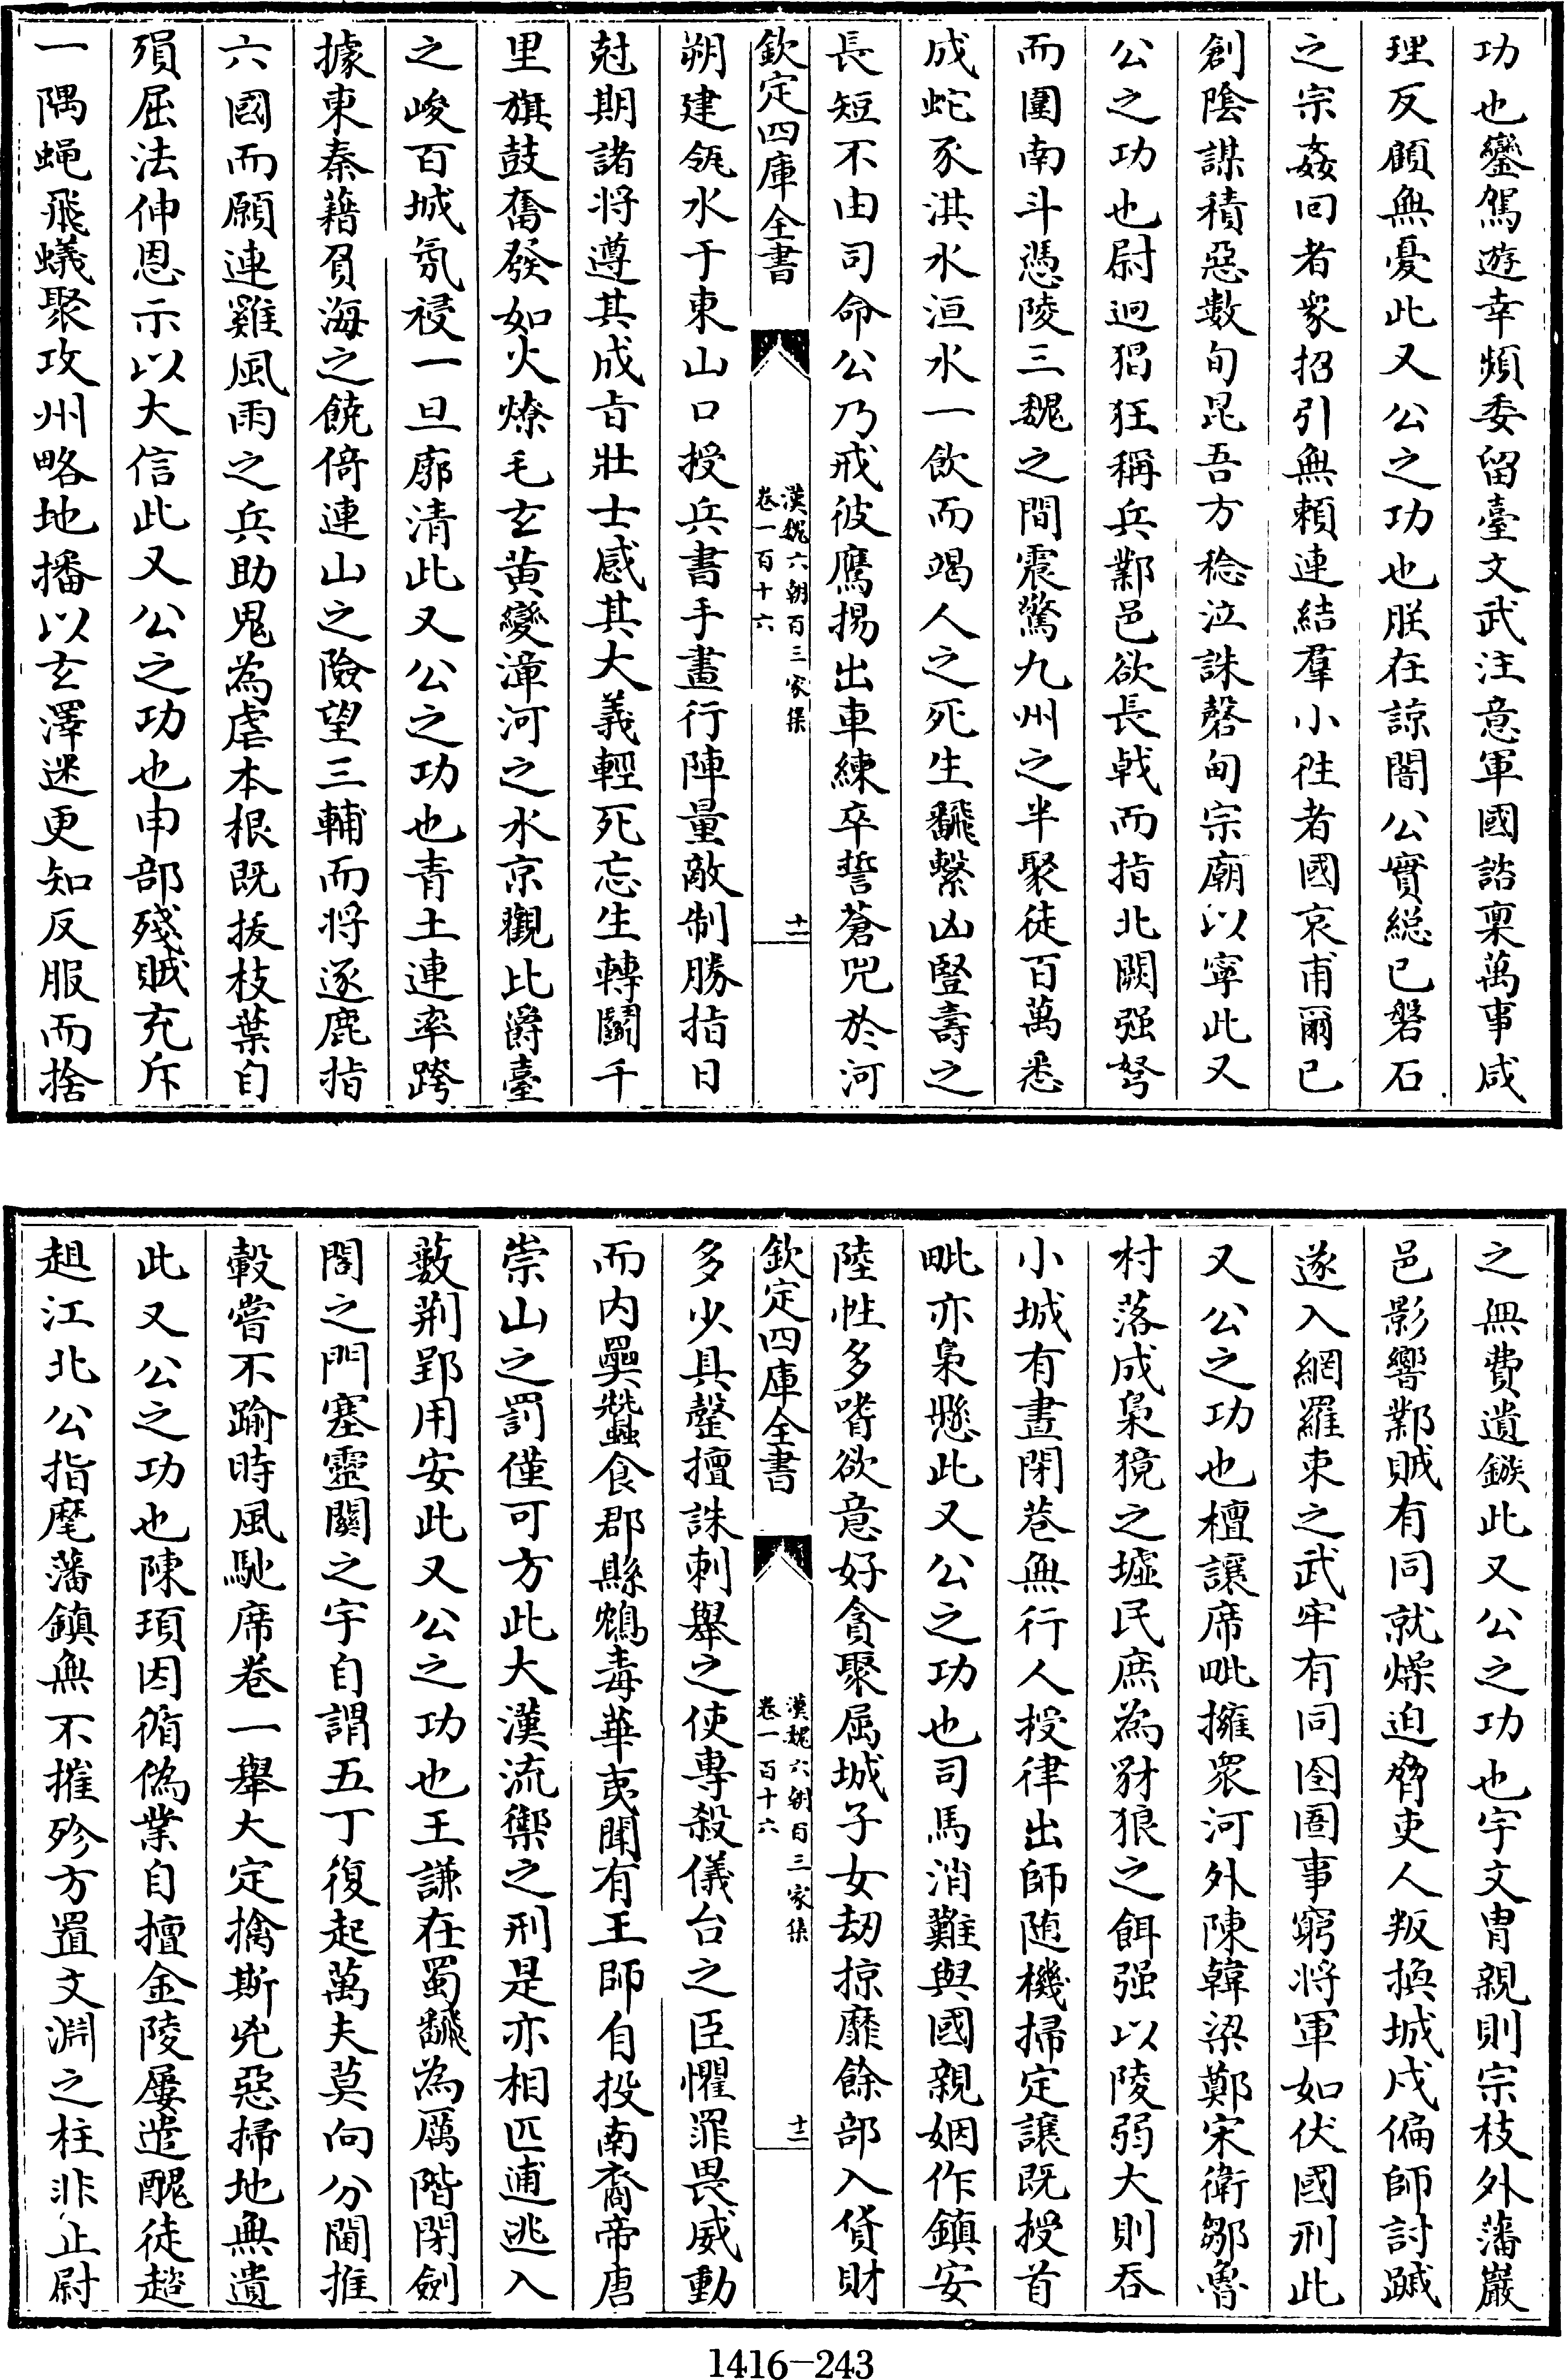 功也鑾駕遊幸頻委留臺文武注意軍國諮稟萬事咸
理反顧無憂此又公之功也朕在諒闇公實總已磐石
之宗姦回者衆招引無賴連結羣小往者國哀甫爾已
創陰謀積惡數旬昆吾方稔泣誅磬甸宗廟以寧此又
公之功也尉迥猖狂稱兵鄴邑欲長戟而指北闕强弩
而圍南斗憑陵三魏之間震驚九州之半聚徒百萬悉
成蛇豕淇水洹水一飲而竭人之死生飜繫凶豎壽之
長短不由司命公乃戒彼鷹揚出車練卒誓蒼兕於河
欽定四庫全書
漢魏六朝百三家集
卷一百十六
十一
朔建瓴水于東山口授兵書手畫行陣量敵制勝指日
尅期諸将遵其成㫖壯士感其大義輕死忘生轉鬬千
里旗鼓奮發如火燎毛玄黄變漳河之水京觀比爵臺
之峻百城氛祲一旦廓清此又公之功也青土連率跨
據東秦藉負海之饒倚連山之險望三輔而将逐鹿指
六國而願連雞風雨之兵助鬼為虐本根既拔枝葉自
殞屈法伸恩示以大信此又公之功也申部殘賊充斥
一隅蝇飛蟻聚攻州略地播以玄澤迷更知反服而捨
之無費遺鏃此又公之功也宇文胄親則宗枝外藩巖
邑影響鄴賊有同就燥迫脅吏人叛換城戍偏師討蹴
遂入網羅束之武牢有同囹圄事窮将軍如伏國刑此
又公之功也檀讓席毗擁衆河外陳韓梁鄭宋衛鄒魯
村落成梟獍之墟民庶為豺狼之餌强以陵弱大則吞
小城有晝閉巷無行人授律出師随機掃定讓既授首
毗亦梟懸此又公之功也司馬消難與國親姻作鎮安
陸性多嗜欲意好貪聚屬城子女刼掠靡餘部入貨財
欽定四庫全書
漢魏六朝百三家集
卷一百十六
十二
多少具罄擅誅刺舉之使專殺儀台之臣懼罪畏威動
而内㚌蠶食郡縣鴆毒華夷聞有王師自投南裔帝唐
崇山之罰僅可方此大漢流禦之刑是亦相匹逋逃入
藪荆郢用安此又公之功也王謙在蜀飜為厲階閉劍
閣之門塞靈關之宇自謂五丁復起萬夫莫向分閫推
轂嘗不踰時風馳席卷一舉大定擒斯兇惡掃地無遺
此又公之功也陳頊因循偽業自擅金陵屢遣醜徒趑
趄江北公指麾藩鎮無不摧殄方置文淵之柱非止尉
1416-243